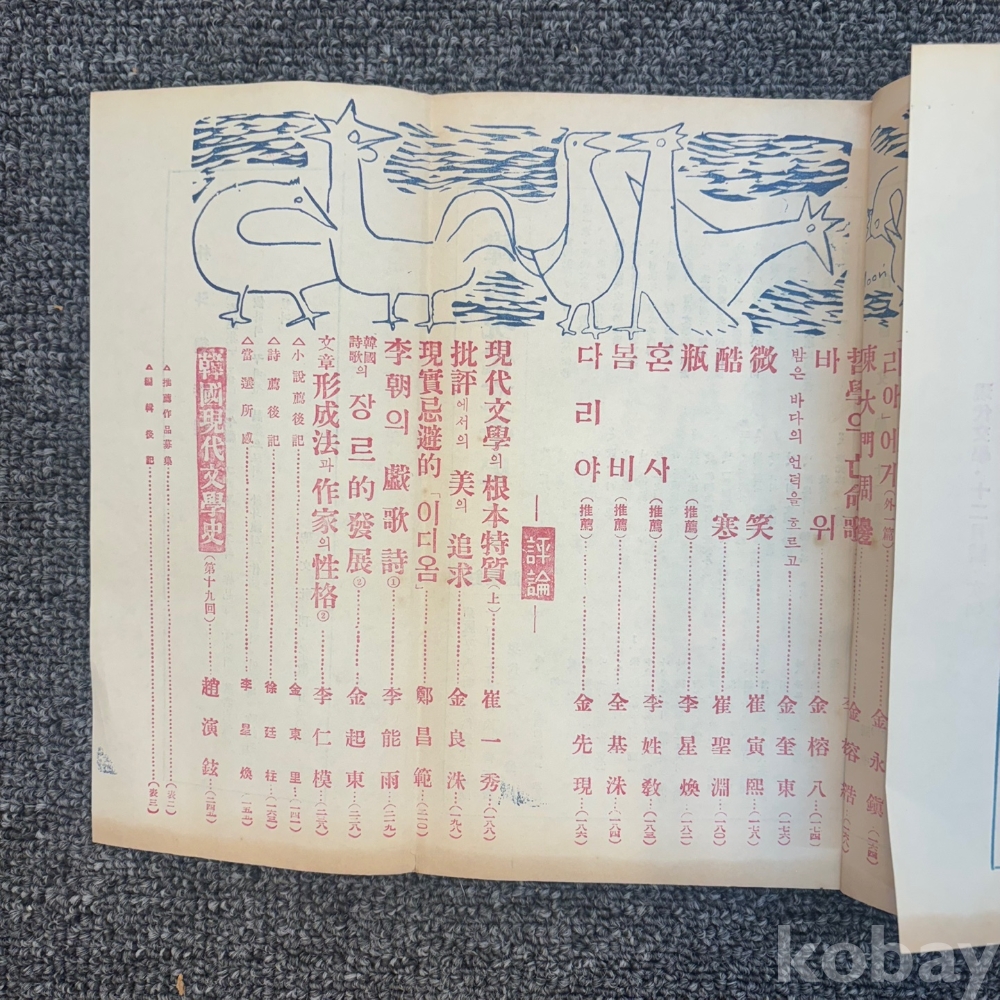 리아」에게(外一篇)……金永鎭(一六四)
東大門周邊
哲學의 亡命歌……金榕浩
바위……金榕八…(一七四)
밤은 바다의 언덕을 흐르고……金奎東…(一七六)
微笑……崔寅熙…(一七八)
酷寒……崔聖淵…(一八〇)
瓶(推薦)……李星煥…(一八二)
혼사(推薦)……李姓敎…(一八三)
봄비(推薦)……全基洙…(一八四)
다리야(推薦)……金先現…(一八六)
評論
現代文學의 根本特質(上)……崔一秀…(一八八)
批評에서의 美의 追求……金良洙…(一九八)
現實忌避的「이디옴」……鄭昌範…(二一〇)
李朝의 戱歌詩①……李能雨…(二一九)
韓國詩歌의 장르的 發展②……金起東…(二二八)
文章形成法과 作家의 性格②……李仁模…(二三八)
△小說薦後記……金東里…(一四一)
△詩薦後記……徐廷柱…(一八三)
△當選所感……李星煥…(一五七)
韓國現代文學史(第十九回)……趙演鉉…(二四五)
△推薦作品募集……(表二)
△編輯後記……(表三)
kobay